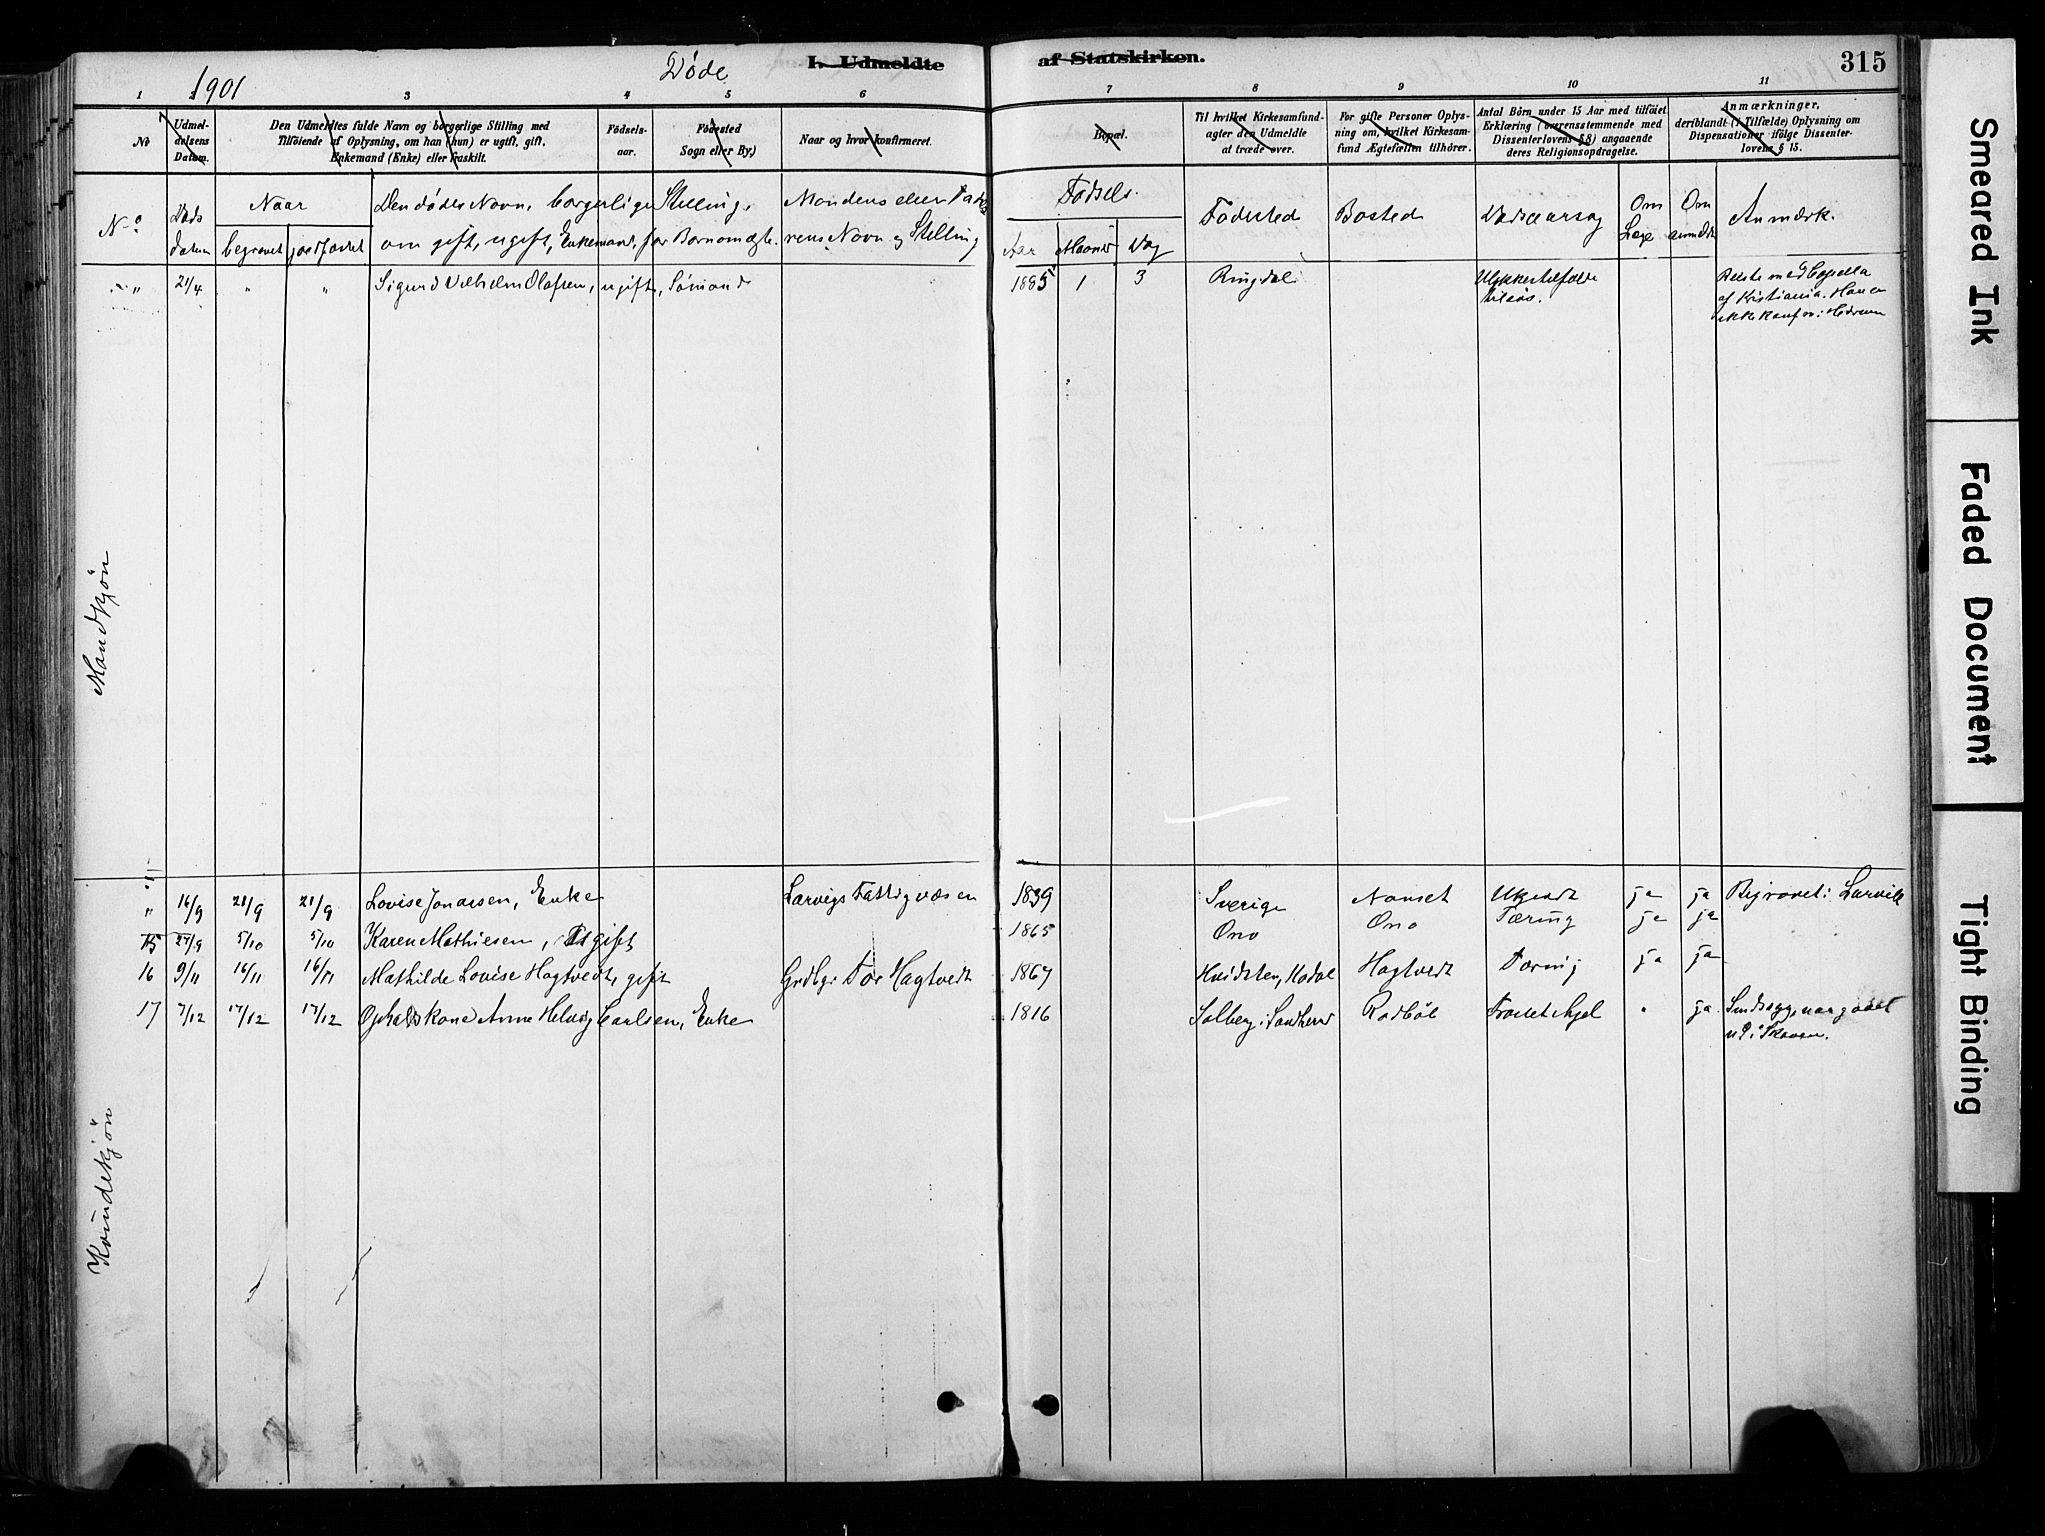 1901 Døde I. Udmeldte af Statskirken. 315
1 2 3 4 5 6 7 8 9 10 11
No
Udmel-
delsens
Datum.
Den Udmeldtes fulde Navn og borgerlige Stilling med
Tilföiende af Oplysning, om han (hun) er ugift, gift,
Enkemand (Enke) eller fraskilt.
Födsels-
aar.
Födested
Sogn eller By.)
Naar og hvor konfirmeret.
Bopæl.
Til hvilket Kirkesamfund-
agter den Udmeldte
at træde over.
For gifte Personer Oplys-
ning om, hvilket Kirkesam-
fund Ægtefællen tilhörer.
Antal Börn under 15 Aar med tilföiet
Erklæring (overensstemmende med
Dissenterlovens § 8) angaaende
deres Religionsopdragelse.
Anmærkninger,
deriblandt (i Tilfælde) Oplysning om
Dispensationer ifölge Dissenter-
lovens § 15.
No
Døds
datum
Naar
begravet jordfæstet
Den dødes Navn, borgerlige Stilling,
om gift, ugift, Enkemand, for Børn om ægte.
Mandens eller Fade
rens Navn og Stilling
Fødsels
Aar Maaned Dag
Fødested
Bosted
Dødsaarsag
Om
Læge
Om
anmeldt
Anmærk.
Mandkjøn
" 21/4 " " Sigurd Vilhelm Olafsen, ugift, Sømand 1885 1 3 Ringdal Ulykkestilfælde Reiste med Capella
tilsøs. af Kristiania. Han er
ikke konf. i Hedrum
Kvindekjøn
" 16/9 21/9 21/9 Lovise Jonassen, Enke Larvigs Fattigvæsen 1839 Sverige Nanset Ukjendt ja ja Begravet i Larvik
15 27/9 5/10 5/10 Karen Mathiesen, gift 1865 Ono Ono Tæring ja ja
16 9/11 16/11 16/11 Mathilde Lovise Hagtvedt, gift Grdbgr Tor Hagtvedt 1867 Hvidsten, Kodal Hagtvedt Tæring ja ja
17 7/12 17/12 17/12 Opholdskone Anne Helvig Carlsen, Enke 1816 Solberg i Sandherred Rødbøl Frosset ihjel " ja Sindssyg, var gaaet
ud i Skoven.
Smeared Ink
Faded Document
Tight Binding